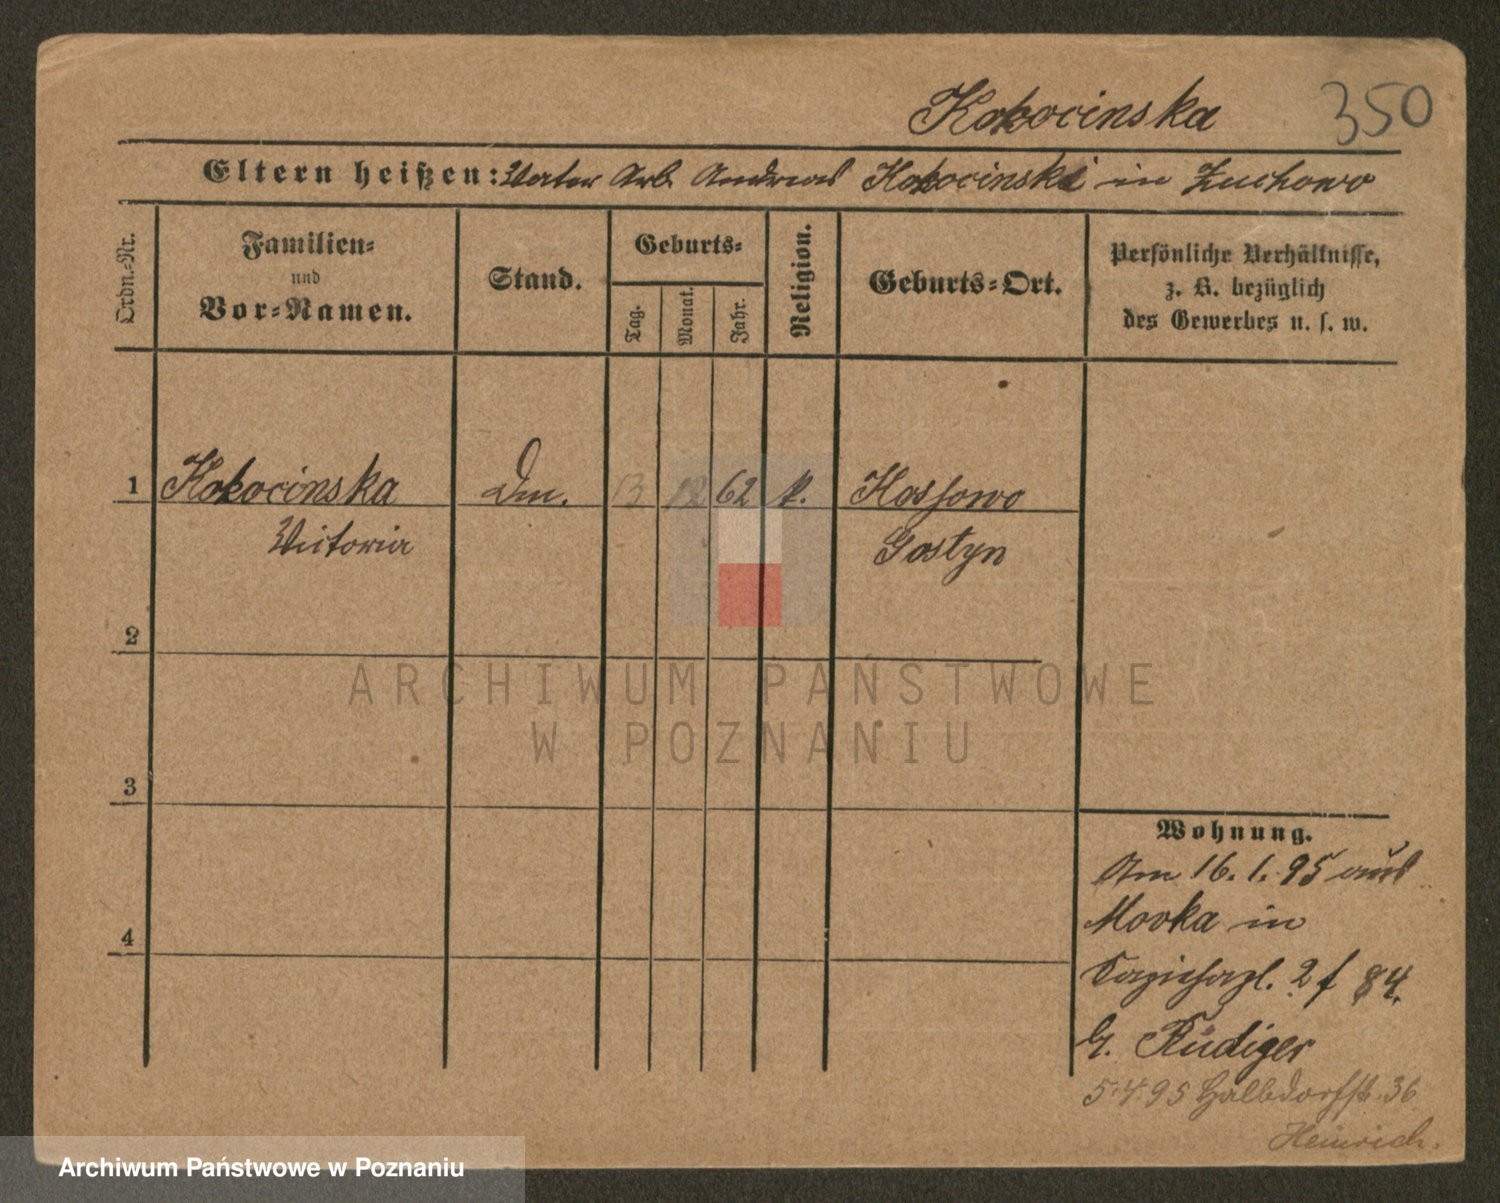 Kokocinska 350
Eltern heißen: Vater Arb. Andreas Kokocinski in Zuchowo
Ordn.-Nr.
Familien-
und
Vor-Namen.
Stand.
Geburts-
Tag.
Monat.
Jahr.
Religion.
Geburts-Ort.
Persönliche Verhältnisse,
z. B. bezüglich
des Gewerbes u. s. w.
1 Kokocinska Dm. 13 12 62 k. Kossowo
Victoria Gostyn
2
3
4
Wohnung.
Am 16. 1. 95 aus
Movka in
2 f 84.
G. Rüdiger
5.4.95 Halbdorfstr. 36
Heinrich.
ARCHIWUM PAŃSTWOWE
W POZNANIU
Archiwum Państwowe w Poznaniu